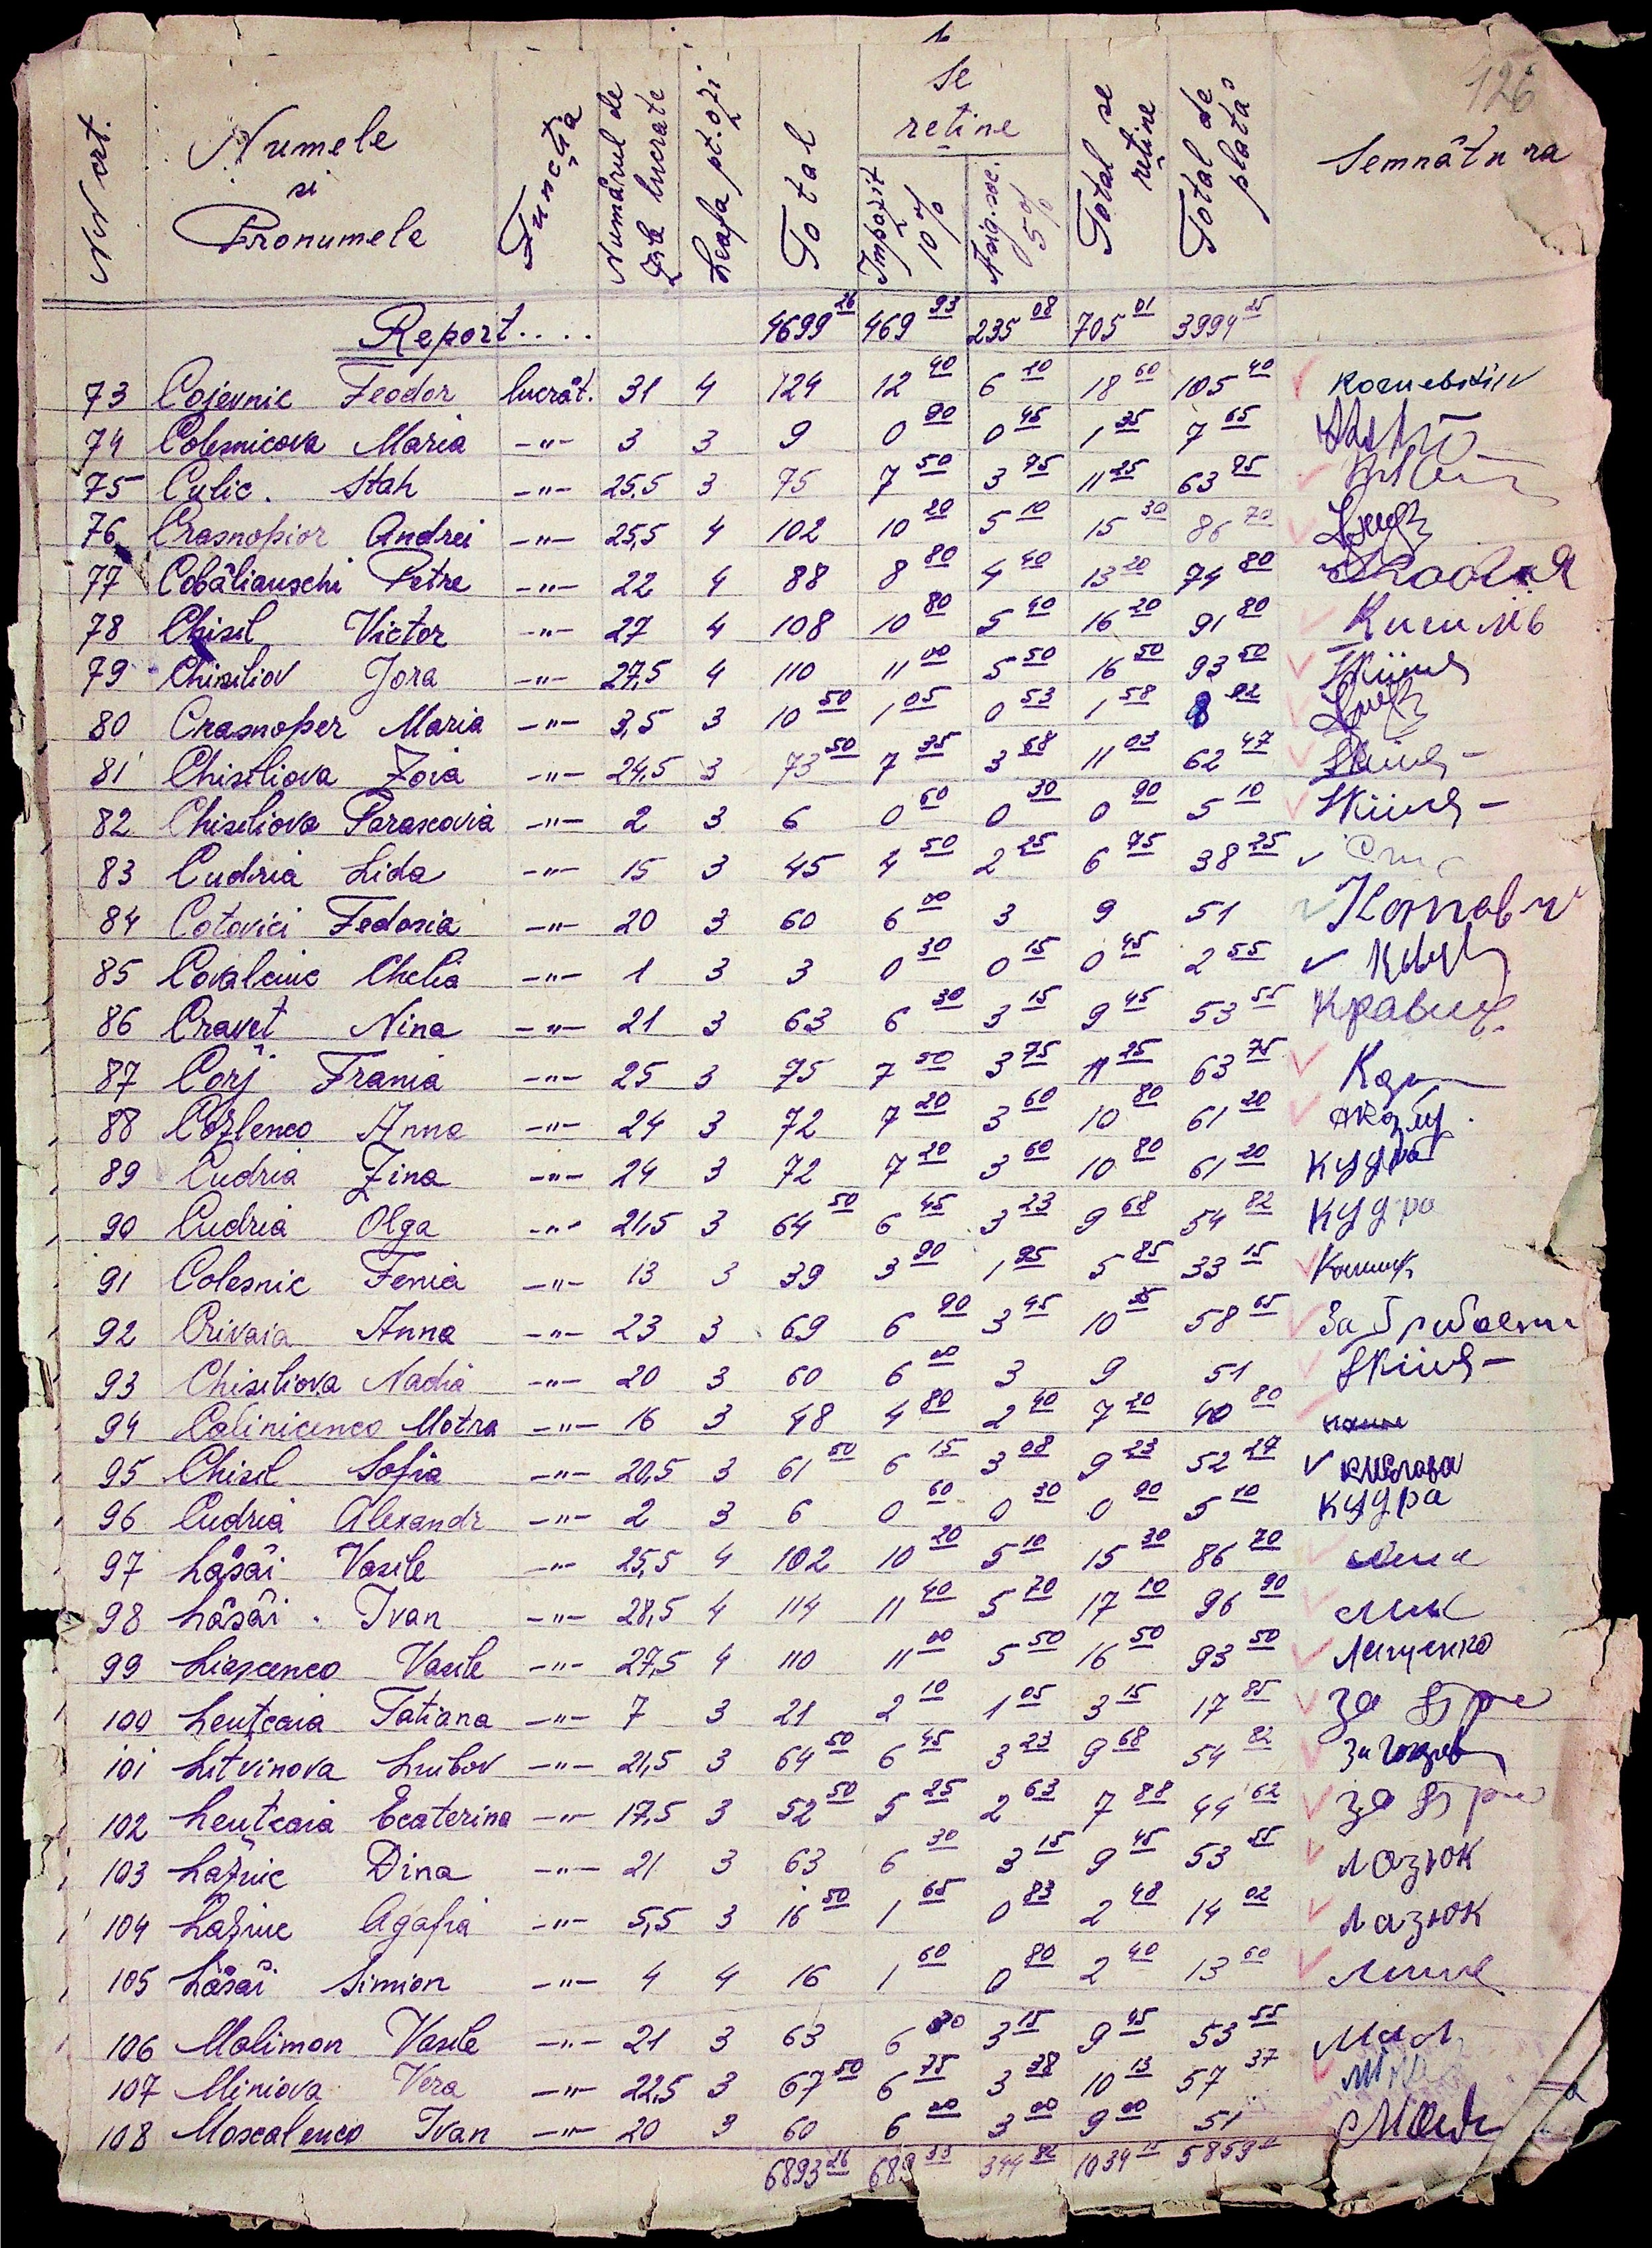 1
126
Nr crt.
Numele
si
Pronumele
Funcţia
Numărul de
zile lucrate
Leafa pt. o zi
Total
Se
reţine
Impozit
10%
Asig. soc.
5%
Total se
reţine
Total de
plata
Semnătura
Report.... 4699 26 469 93 235 08 705 01 3994 25
73 Cojevnic Feodor lucrăt. 31 4 124 12 40 6 20 18 60 105 40
74 Colesnicova Maria -"- 3 3 9 0 90 0 45 1 35 7 65
75 Culic. Stah -"- 25,5 3 75 7 50 3 75 11 25 63 75
76 Crasnopior Andrei -"- 25,5 4 102 10 20 5 10 15 30 86 70
77 Cobălianschi Petre -"- 22 4 88 8 80 4 40 13 20 74 80
78 Chisil Victor -"- 27 4 108 10 80 5 40 16 20 91 80
79 Chisiliov Jora -"- 27,5 4 110 11 00 5 50 16 50 93 50
80 Crasnoper Maria -"- 3,5 3 10 50 1 05 0 53 1 58 8 92
81 Chisiliova Zoia -"- 24,5 3 73 50 7 35 3 68 11 03 62 47
82 Chisiliova Parascovia -"- 2 3 6 0 60 0 30 0 90 5 10
83 Cudria Lida -"- 15 3 45 4 50 2 25 6 75 38 25
84 Cotovici Fedosia -"- 20 3 60 6 00 3 9 51
85 Covalciuc Chelia -"- 1 3 3 0 30 0 15 0 45 2 55
86 Craveţ Nina -"- 21 3 63 6 30 3 15 9 45 53 55 Кравец
87 Corj Frania -"- 25 3 75 7 50 3 75 11 25 63 75
88 Cozlenco Anna -"- 24 3 72 7 20 3 60 10 80 61 20
89 Cudria Zina -"- 24 3 72 7 20 3 60 10 80 61 20 кудра
90 Cudria Olga -"- 21,5 3 64 50 6 45 3 23 9 68 54 82 кудра
91 Colesnic Fenia -"- 13 3 39 3 90 1 95 5 85 33 15
92 Crivaia Anna -"- 23 3 69 6 90 3 45 10 35 58 65
93 Chisiliova Nadia -"- 20 3 60 6 00 3 9 51
94 Calinicenco Motra -"- 16 3 48 4 80 2 40 7 20 40 80
95 Chisil Sofia -"- 20,5 3 61 50 6 15 3 08 9 23 52 27
96 Cudria Alexandr -"- 2 3 6 0 60 0 30 0 90 5 10 кудра
97 Lăsăi Vasile -"- 25,5 4 102 10 20 5 10 15 30 86 70
98 Lăsăi. Ivan -"- 28,5 4 114 11 40 5 70 17 10 96 90
99 Liascenco Vasile -"- 27,5 4 110 11 00 5 50 16 50 93 50 Лященко
100 Leuţcaia Tatiana -"- 7 3 21 2 10 1 05 3 15 17 85
101 Litvinova Liubov -"- 21,5 3 64 50 6 45 3 23 9 68 54 82
102 Leuţcaia Ecaterina -"- 17,5 3 52 50 5 25 2 63 7 88 44 62
103 Laziuc Dina -"- 21 3 63 6 30 3 15 9 45 53 55 лазюк
104 Laziuc Agafia -"- 5,5 3 16 50 1 65 0 83 2 48 14 02 лазюк
105 Lăsăi Simion -"- 4 4 16 1 60 0 80 2 40 13 60
106 Malimon Vasile -"- 21 3 63 6 30 3 15 9 45 53 55
107 Miniova Vera -"- 22,5 3 67 50 6 75 3 38 10 13 57 37
108 Moscalenco Ivan -"- 20 3 60 6 00 3 00 9 00 51
6893 26 689 33 344 82 1034 5859